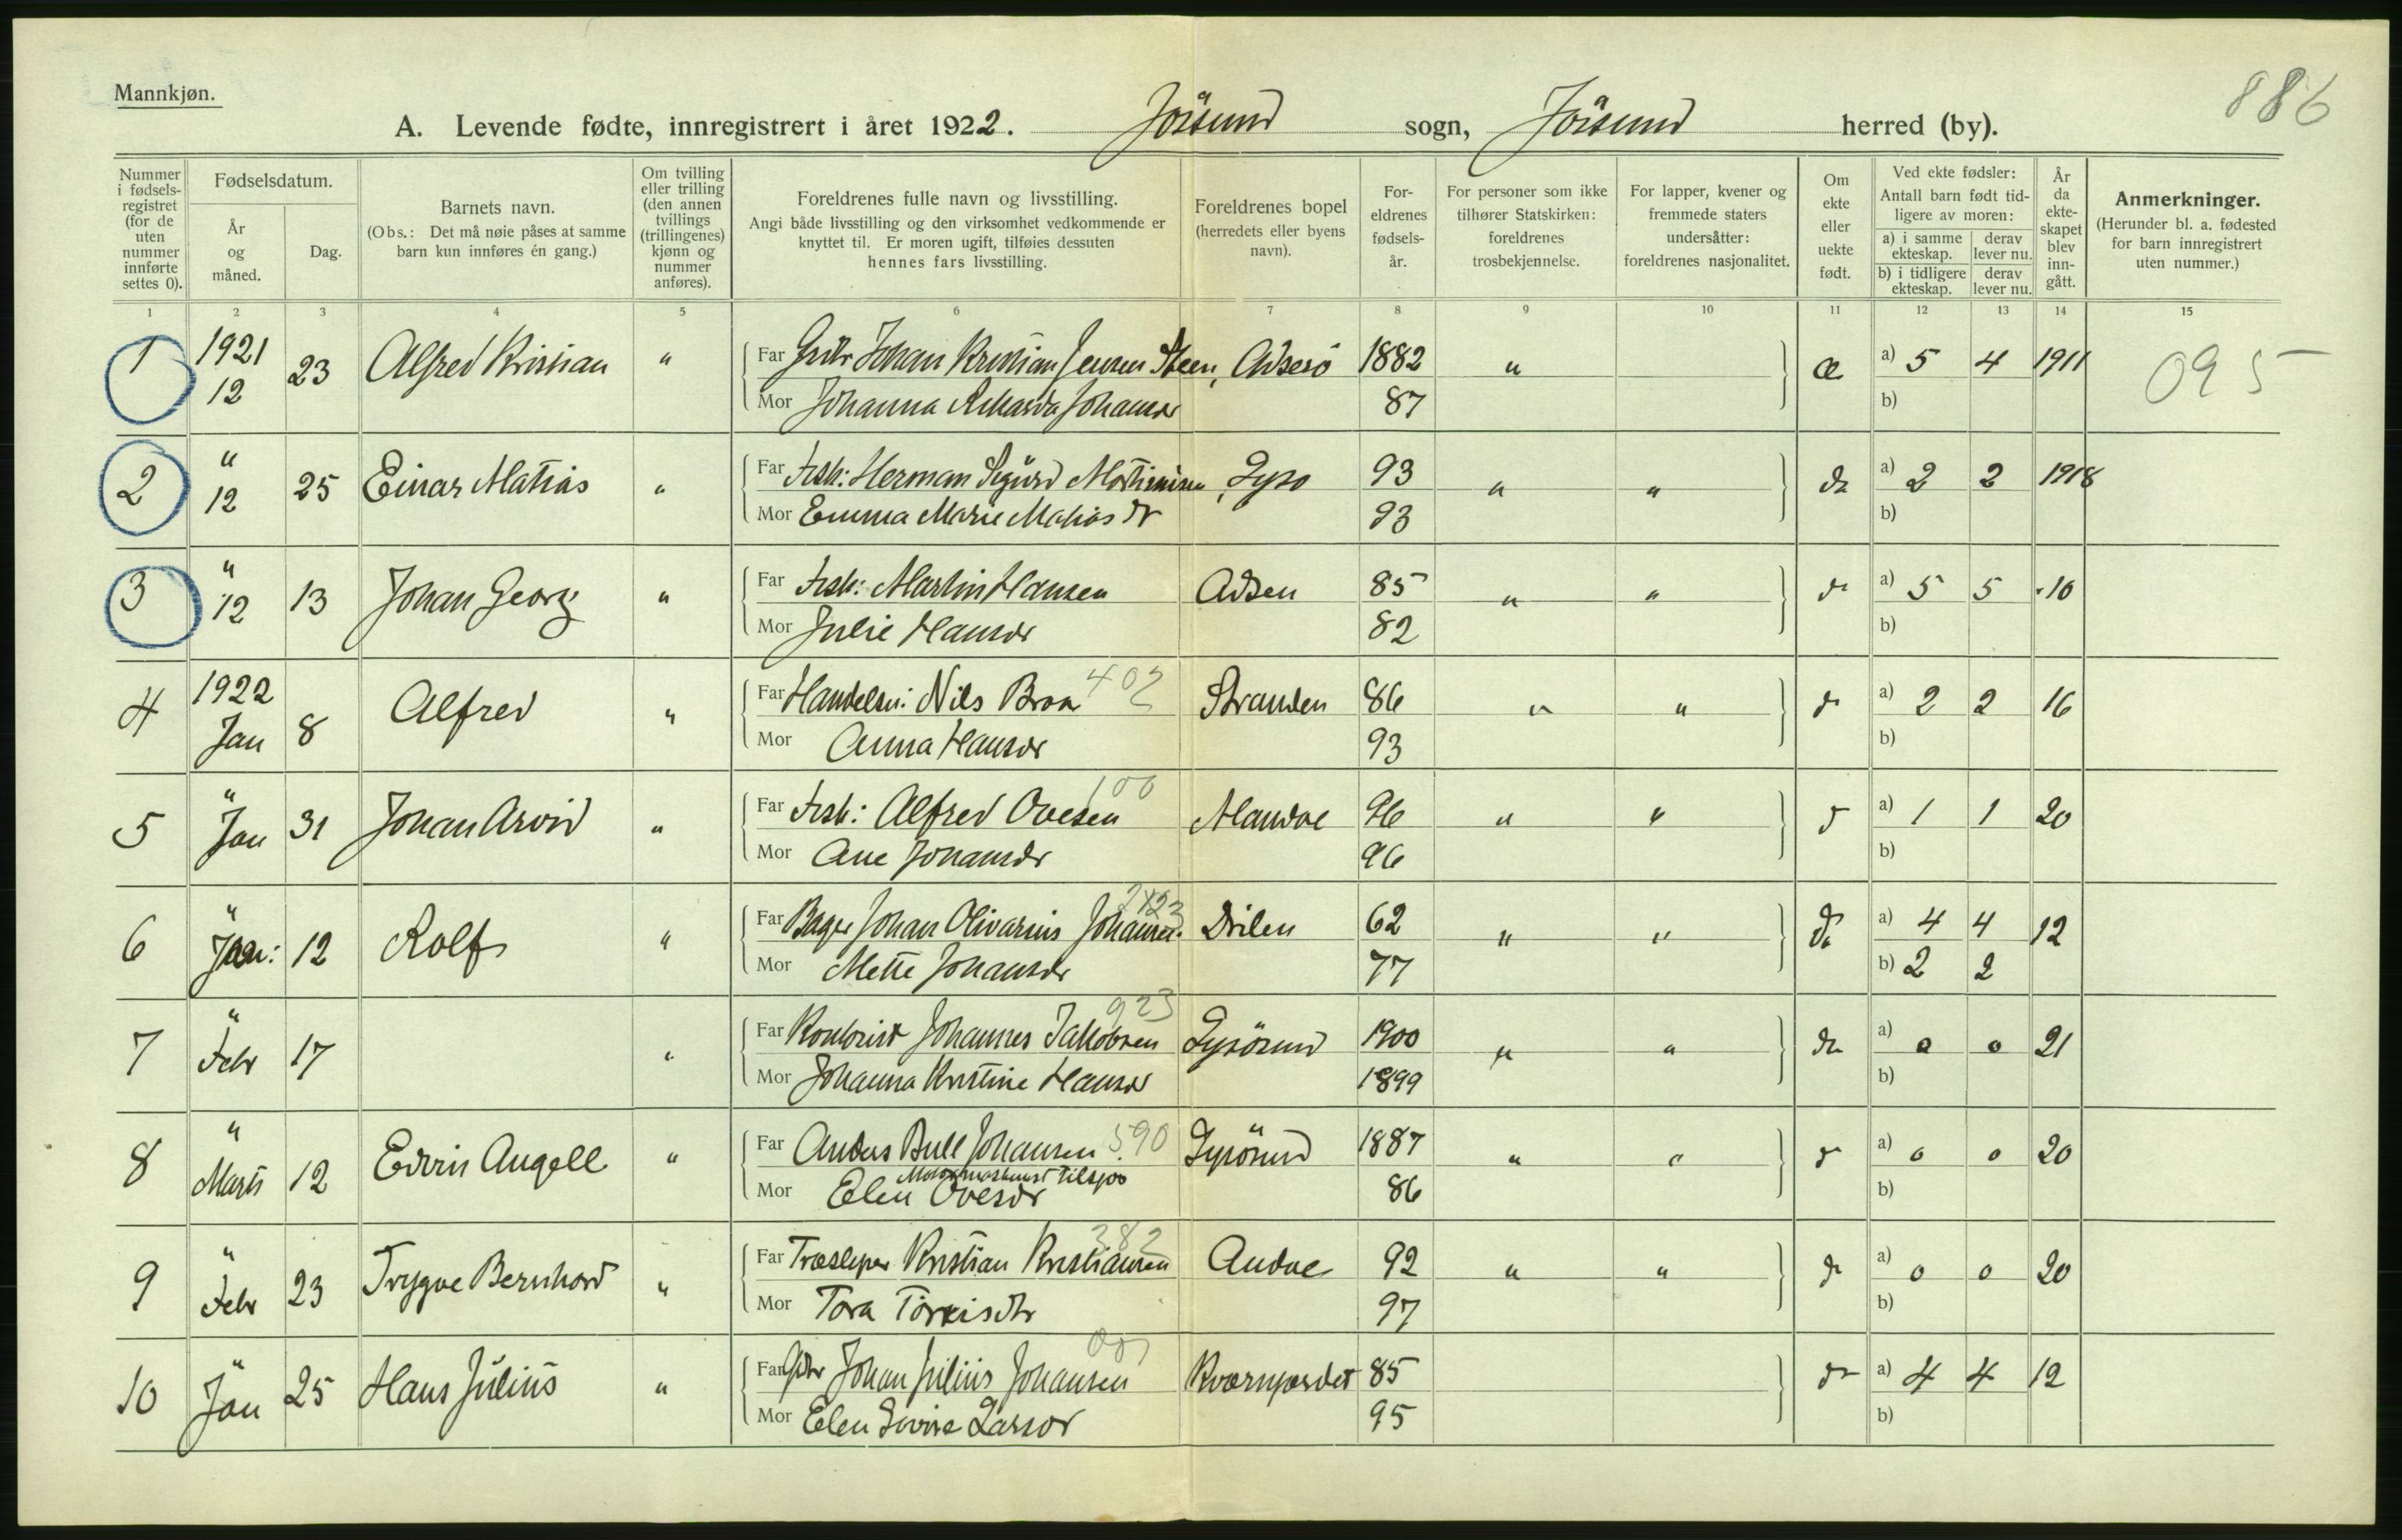 Mannkjøn.
886
A. Levende fødte, innregistrert i året 1922. Jösund sogn, Jösund herred (by).
Nummer i fødsels-registret (for de uten nummer innførte settes 0).
Fødselsdatum.
År og måned.
Dag.
Barnets navn.
(Obs.: Det må nøie påses at samme barn kun innføres én gang.)
Om tvilling eller trilling (den annen tvillings (trillingenes) kjønn og nummer anføres).
Foreldrenes fulle navn og livsstilling.
Angi både livsstilling og den virksomhet vedkommende er knyttet til. Er moren ugift, tilføies dessuten hennes fars livsstilling.
Foreldrenes bopel (herredets eller byens navn).
For-eldrenes fødsels-år.
For personer som ikke tilhører Statskirken: foreldrenes trosbekjennelse.
For lapper, kvener og fremmede staters undersåtter: foreldrenes nasjonalitet.
Om ekte eller uekte født.
Ved ekte fødsler: Antall barn født tid-ligere av moren:
a) i samme ekteskap.
derav lever nu.
b) i tidligere ekteskap.
derav lever nu.
År da ekte-skapet blev inn-gått.
Anmerkninger.
(Herunder bl. a. fødested for barn innregistrert uten nummer.)
1 2 3 4 5 6 7 8 9 10 11 12 13 14 15
1 1921 12 23 Alfred Kristian " Far Johan Kristian Jensen Steen, 1882 " æ a) 5 4 1911 095
Mor Johanna Rikarda Johansdr 87 b)
2 " 12 25 Einar Matias " Far Fisk: Herman Sigurd Mortinsen, Lysø 93 " " do a) 2 2 1918
Mor Emma Marie Matiasdr 93 b)
3 " 12 13 Johan Georg " Far Fisk: Martin Hansen Adsen 85 " " d a) 5 5 10
Mor Julie Hansdr 82 b)
4 1922 Jan 8 Alfred " Far Handelsm: Nils Braa 402 Stranden 86 " " d a) 2 2 16
Mor Anna Hansdr 93 b)
5 " Jan 31 Johan Arvid " Far Fisk: Alfred Ovesen 100 96 " " d a) 1 1 20
Mor Ane Johansdr 96 b)
6 " Jan: 12 Rolf " Far Bager Johan Olivarius Johansen. 62 " " do a) 4 4 12
Mor Mette Johansdr 77 b) 2 2
7 " Febr 17 " Far Kontorist Johannes Jakobsen 923 Lysösund 1900 " " do a) 0 0 21
Mor Johanna Kristine Hansdr 1899 b)
8 " Marts 12 Edvin Angell " Far Anders Bull Johansen 590 Lysösund 1887 " " d a) 0 0 20
Motormaskinist tilsjøs
Mor Elen Ovesdr 86 b)
9 " Febr 23 Trygve Bernhard " Far Træsliper Kristian Kristiansen 382 92 " " d a) 0 0 20
Mor Tora 97 b)
10 " Jan 25 Hans Julius " Far Gbr Johan Julius Johansen 001 Kværnjordet 85 do a) 4 4 12
Mor Elen Lovise Larsdr 95 b)